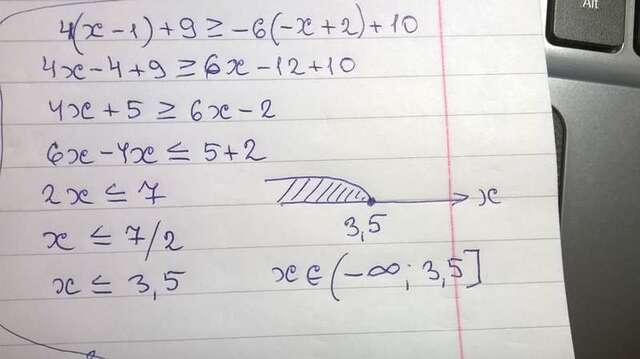 Alt
4(x-1)+9≥-6(-x+2)+10
4x-4+9≥6x-12+10
4x+5≥6x-2
6x-4x≤5+2
2x≤7
x
3,5
x≤7/2
x≤3,5
x∈(-∞;3,5]